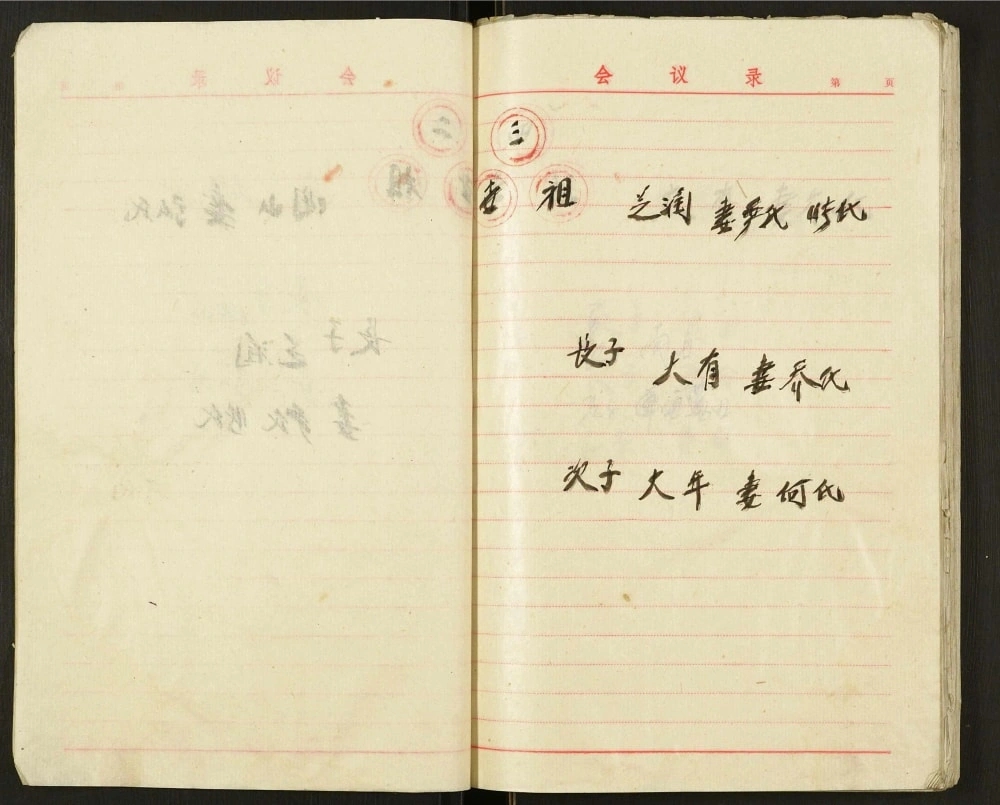 会议录 第 页
三
世祖 芝润 妻乔氏 时氏
长子 大有 妻乔氏
次子 大年 妻何氏